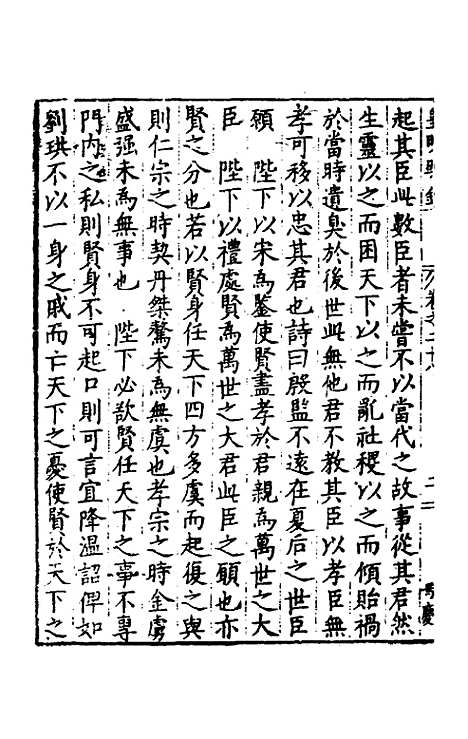 起其臣此數臣者未嘗不以當代之故事從其君然
生靈以之而困天下以之而亂社稷以之而傾貽禍
於當時遺臭於後世此無他君不教其臣以孝臣無
孝可移以忠其君也詩曰殷監不遠在夏后之世臣
願　陛下以宋為鑒使賢盡孝於君親為萬世之大
臣　陛下以禮處賢為萬世之大君此臣之願也亦
賢之分也若以賢身任天下四方多虞而起復之與
則仁宗之時契丹桀驁未為無虞也孝宗之時金虜
盛强未為無事也　陛下必欲賢任天下之事不專
門內之私則賢身不可起口則可言宜降溫詔俾如
劉珙不以一身之戚而亡天下之憂使賢於天下之